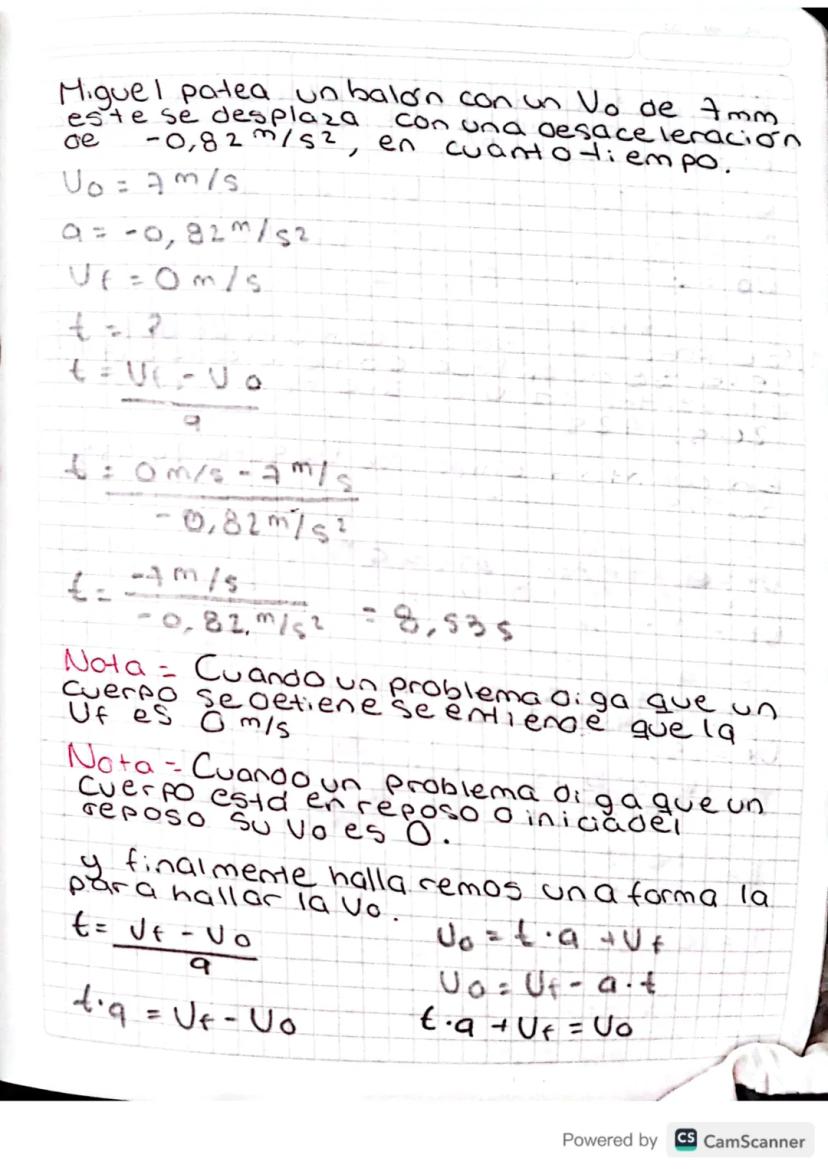 Miguel patea un balón con un Vo de 7mm
este se desplaza con una desaceleración
de -0,82 m/s², en cuanto tiempo.
Vo = 7 m/s
a = -0,82 m/s²
Vf = 0 m/s
t = ?
t = Vf - Vo
a
t = 0 m/s - 7 m/s
-0,82 m/s²
t = -7 m/s
-0,82 m/s² = 8,53 s
Nota = Cuando un problema diga que un
cuerpo se detiene se entiende que la
Vf es 0 m/s
Nota = Cuando un problema diga que un
cuerpo está en reposo o inicia del
reposo su Vo es 0.
y finalmente hallaremos una forma la
para hallar la Vo.
t = Vf - Vo
a
t·a = Vf - Vo
Vo = t·a + Vf
Vo = Vf - a·t
t·a + Vf = Vo
Powered by CS CamScanner